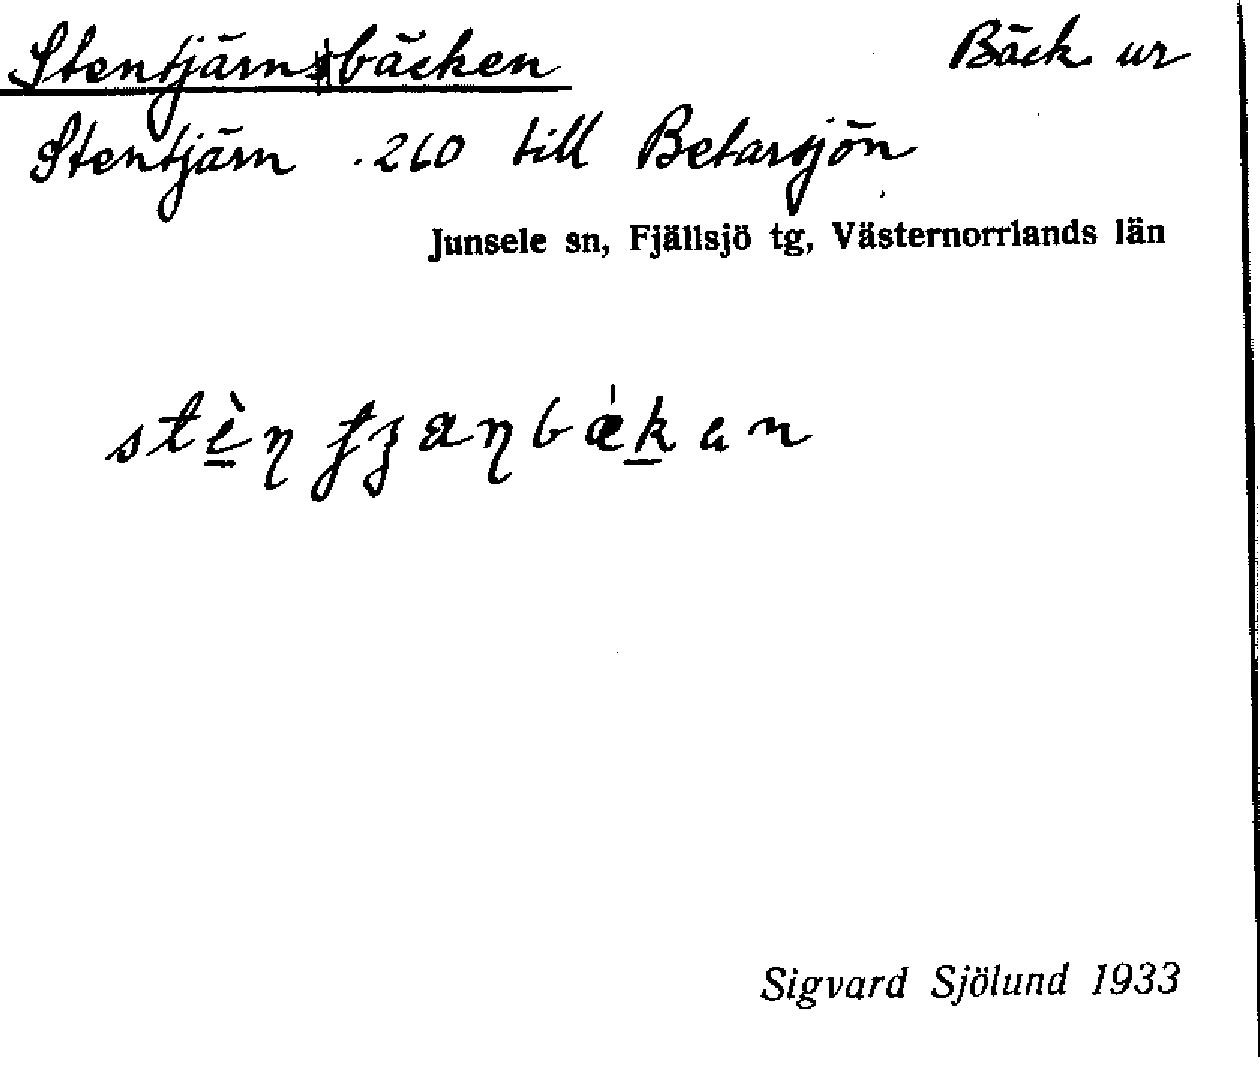 Stentjärnbäcken Bäck ur
Stentjärn 260 till Betarsjön
Junsele sn, Fjällsjö tg, Västernorrlands län
Sigvard Sjölund 1933